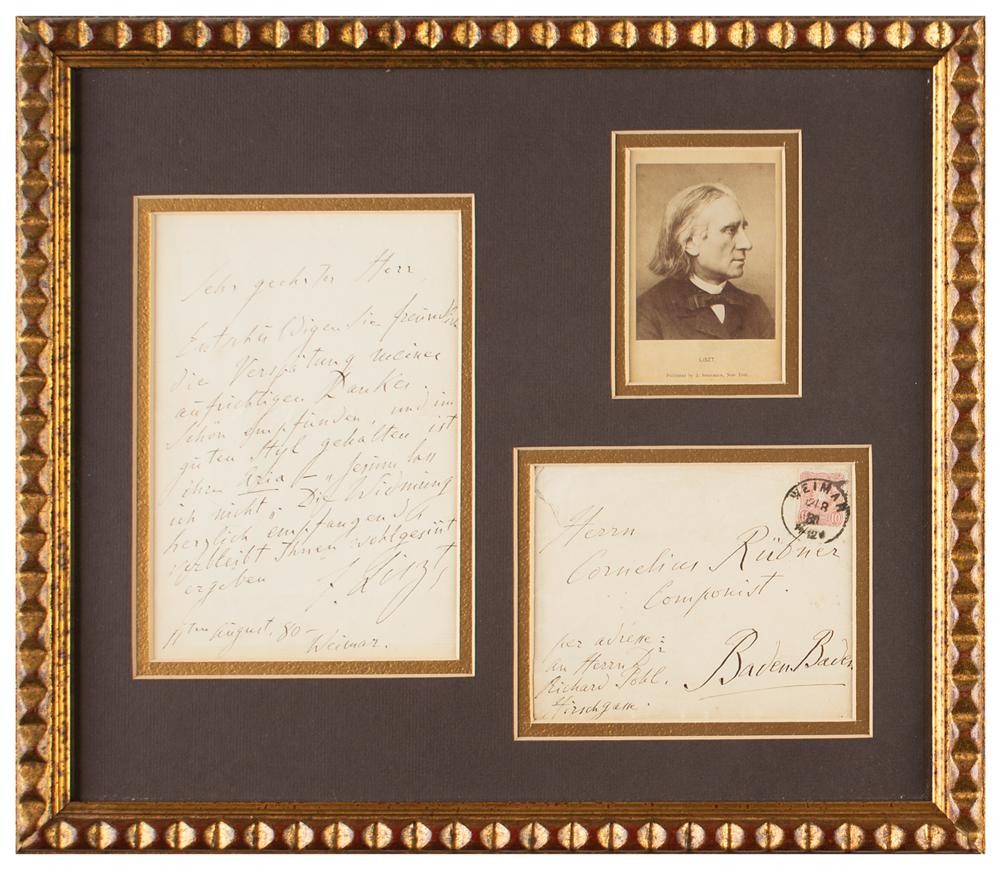 Sehr geehrter Herr,
Entschuldigen Sie freundlich
die Verspätung meines
aufrichtigen Dankes.
Schön empfunden, und im
guten Styl gehalten ist
ihre Aria – "Jesum lass
ich nicht". Die Widmung
herzlich empfangend
verbleibt Ihnen wohlgesinnt
ergeben
F. Liszt
11ten August, 80 –
Weimar.
LISZT.
Published by J. New York.
WEIMAR
80
10
Herrn
Cornelius Rübner
Componist.
per adresse:
an Herrn
Richard Pohl.
Hirschgasse.
Baden Baden